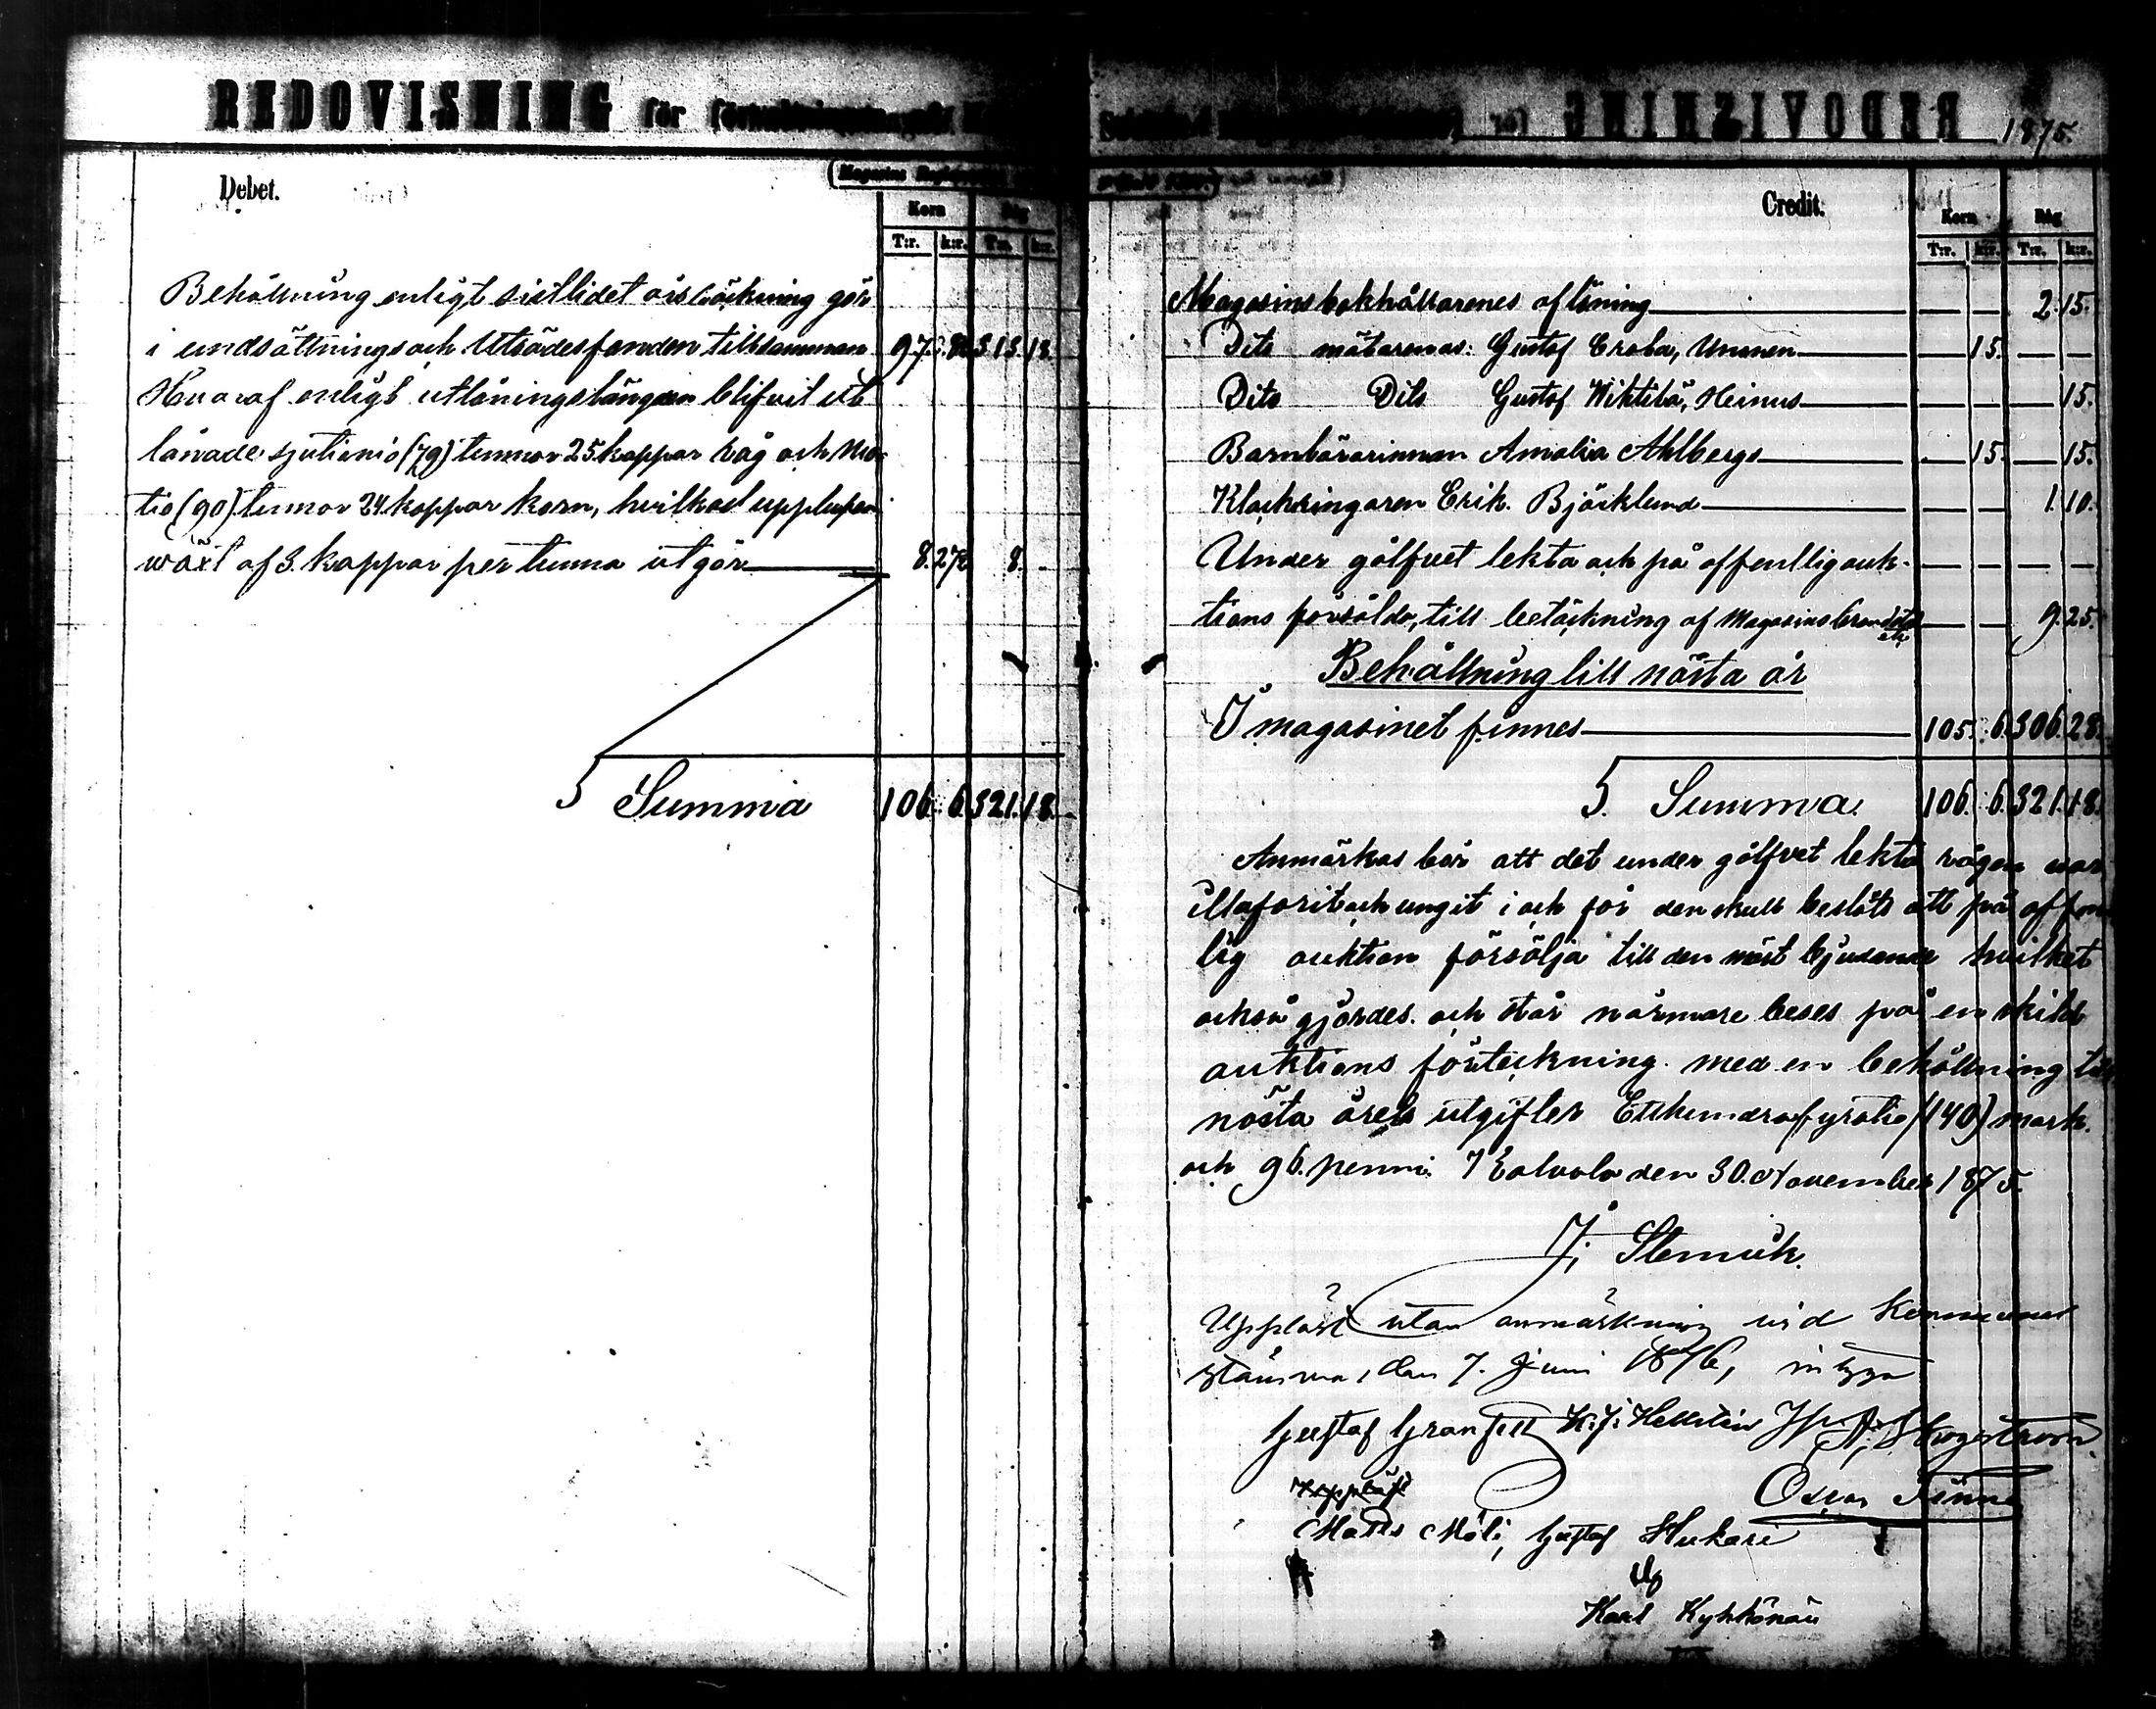 REDOVISNING för
Debet.
Korn Råg
T:r. k:r. T:r. k:r.
Behållning enligt sistlidet års räkning gör
i undsättnings och Utsädesfonden tillsamman 97. 313.18.
Hvaraf enligt utlåningslängden blifvit ut
lånade sjutionio (79) tunnor 25 kappar råg och
tio (90) tunnor 24 kappar korn, hvilkas upplupen
wäxt af 3. kappar per tunna utgör 8. 27½ 8. —
S Summa 106. 6. 321. 18.
REDOVISNING för 1875.
Credit.
Korn Råg
T:r. k:r. T:r. k:r.
Magasinsbokhållarenes aflöning — — 2. 15.
Dito mätarenas: Gustaf Eroba, Ummen — 15. — —
Dito Dito Gustaf Wihtilä, Heinus — — — 15.
Barnbärarinnan Amalia Ahlbergs — 15. — 15.
Klockringaren Erik. Björklund — — 1. 10.
Under gålfvet lekta och på offentlig auk- — — — —
tions försålda, till betäckning af Magasins — — 9. 25.
Behållning till nästa år
I magasinet finnes 105. 6. 306. 28.
S. Summa. 106. 6. 321. 18.
Anmärkas bör att det under gålfvet lekta rågen var
illaforit och ungit i och för den skull beslöts att på offent
lig auktion försälja till den mäst bjudande hvilket
också gjordes. och står närmare leses på en skild
auktions förteckning. med en behållning till
nästa årets utgifter Etthundrafyratio (140) mark.
och 96. penni. Kalvola den 30. November 1875.
J. Stenvik.
Uppläst utan anmärkning vid Kommunal
stämma, den 7. Juni 1876, intyga
Gustaf Granfelt K. J. Hellstén
Oscar
Matts Mäli, Gustaf Hukari
Karl Kyhkönän